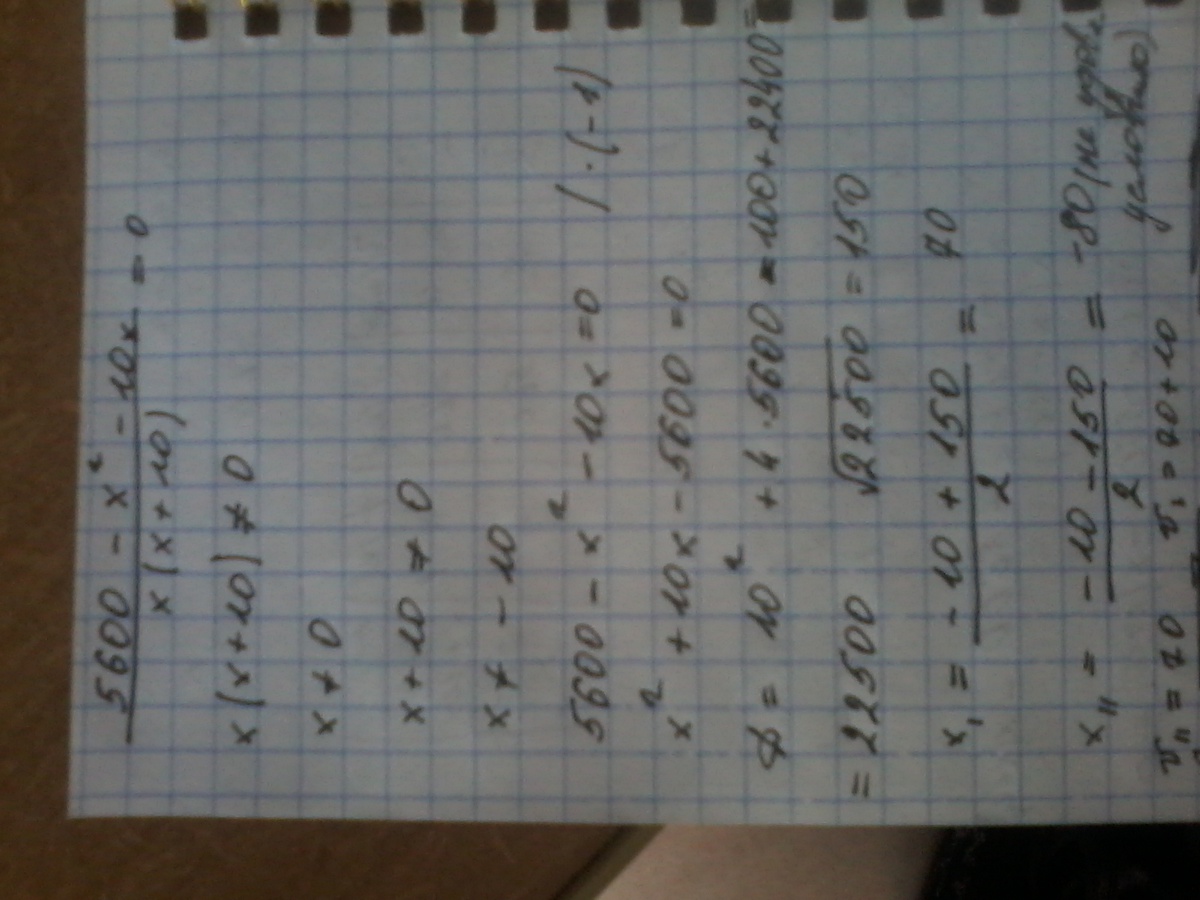 5600 - x² - 10x / x(x+10) = 0
x(x+10) ≠ 0
x ≠ 0
x + 10 ≠ 0
x ≠ - 10
5600 - x² - 10x = 0 / · (-1)
x² + 10x - 5600 = 0
D = 10² + 4 · 5600 = 100 + 22400 =
= 22500 √22500 = 150
x₁ = - 10 + 150 / 2 = 70
x₁₁ = - 10 - 150 / 2 = - 80 (не удовл.
условию)
v₁₁ = 70 v₁ = 70 + 10